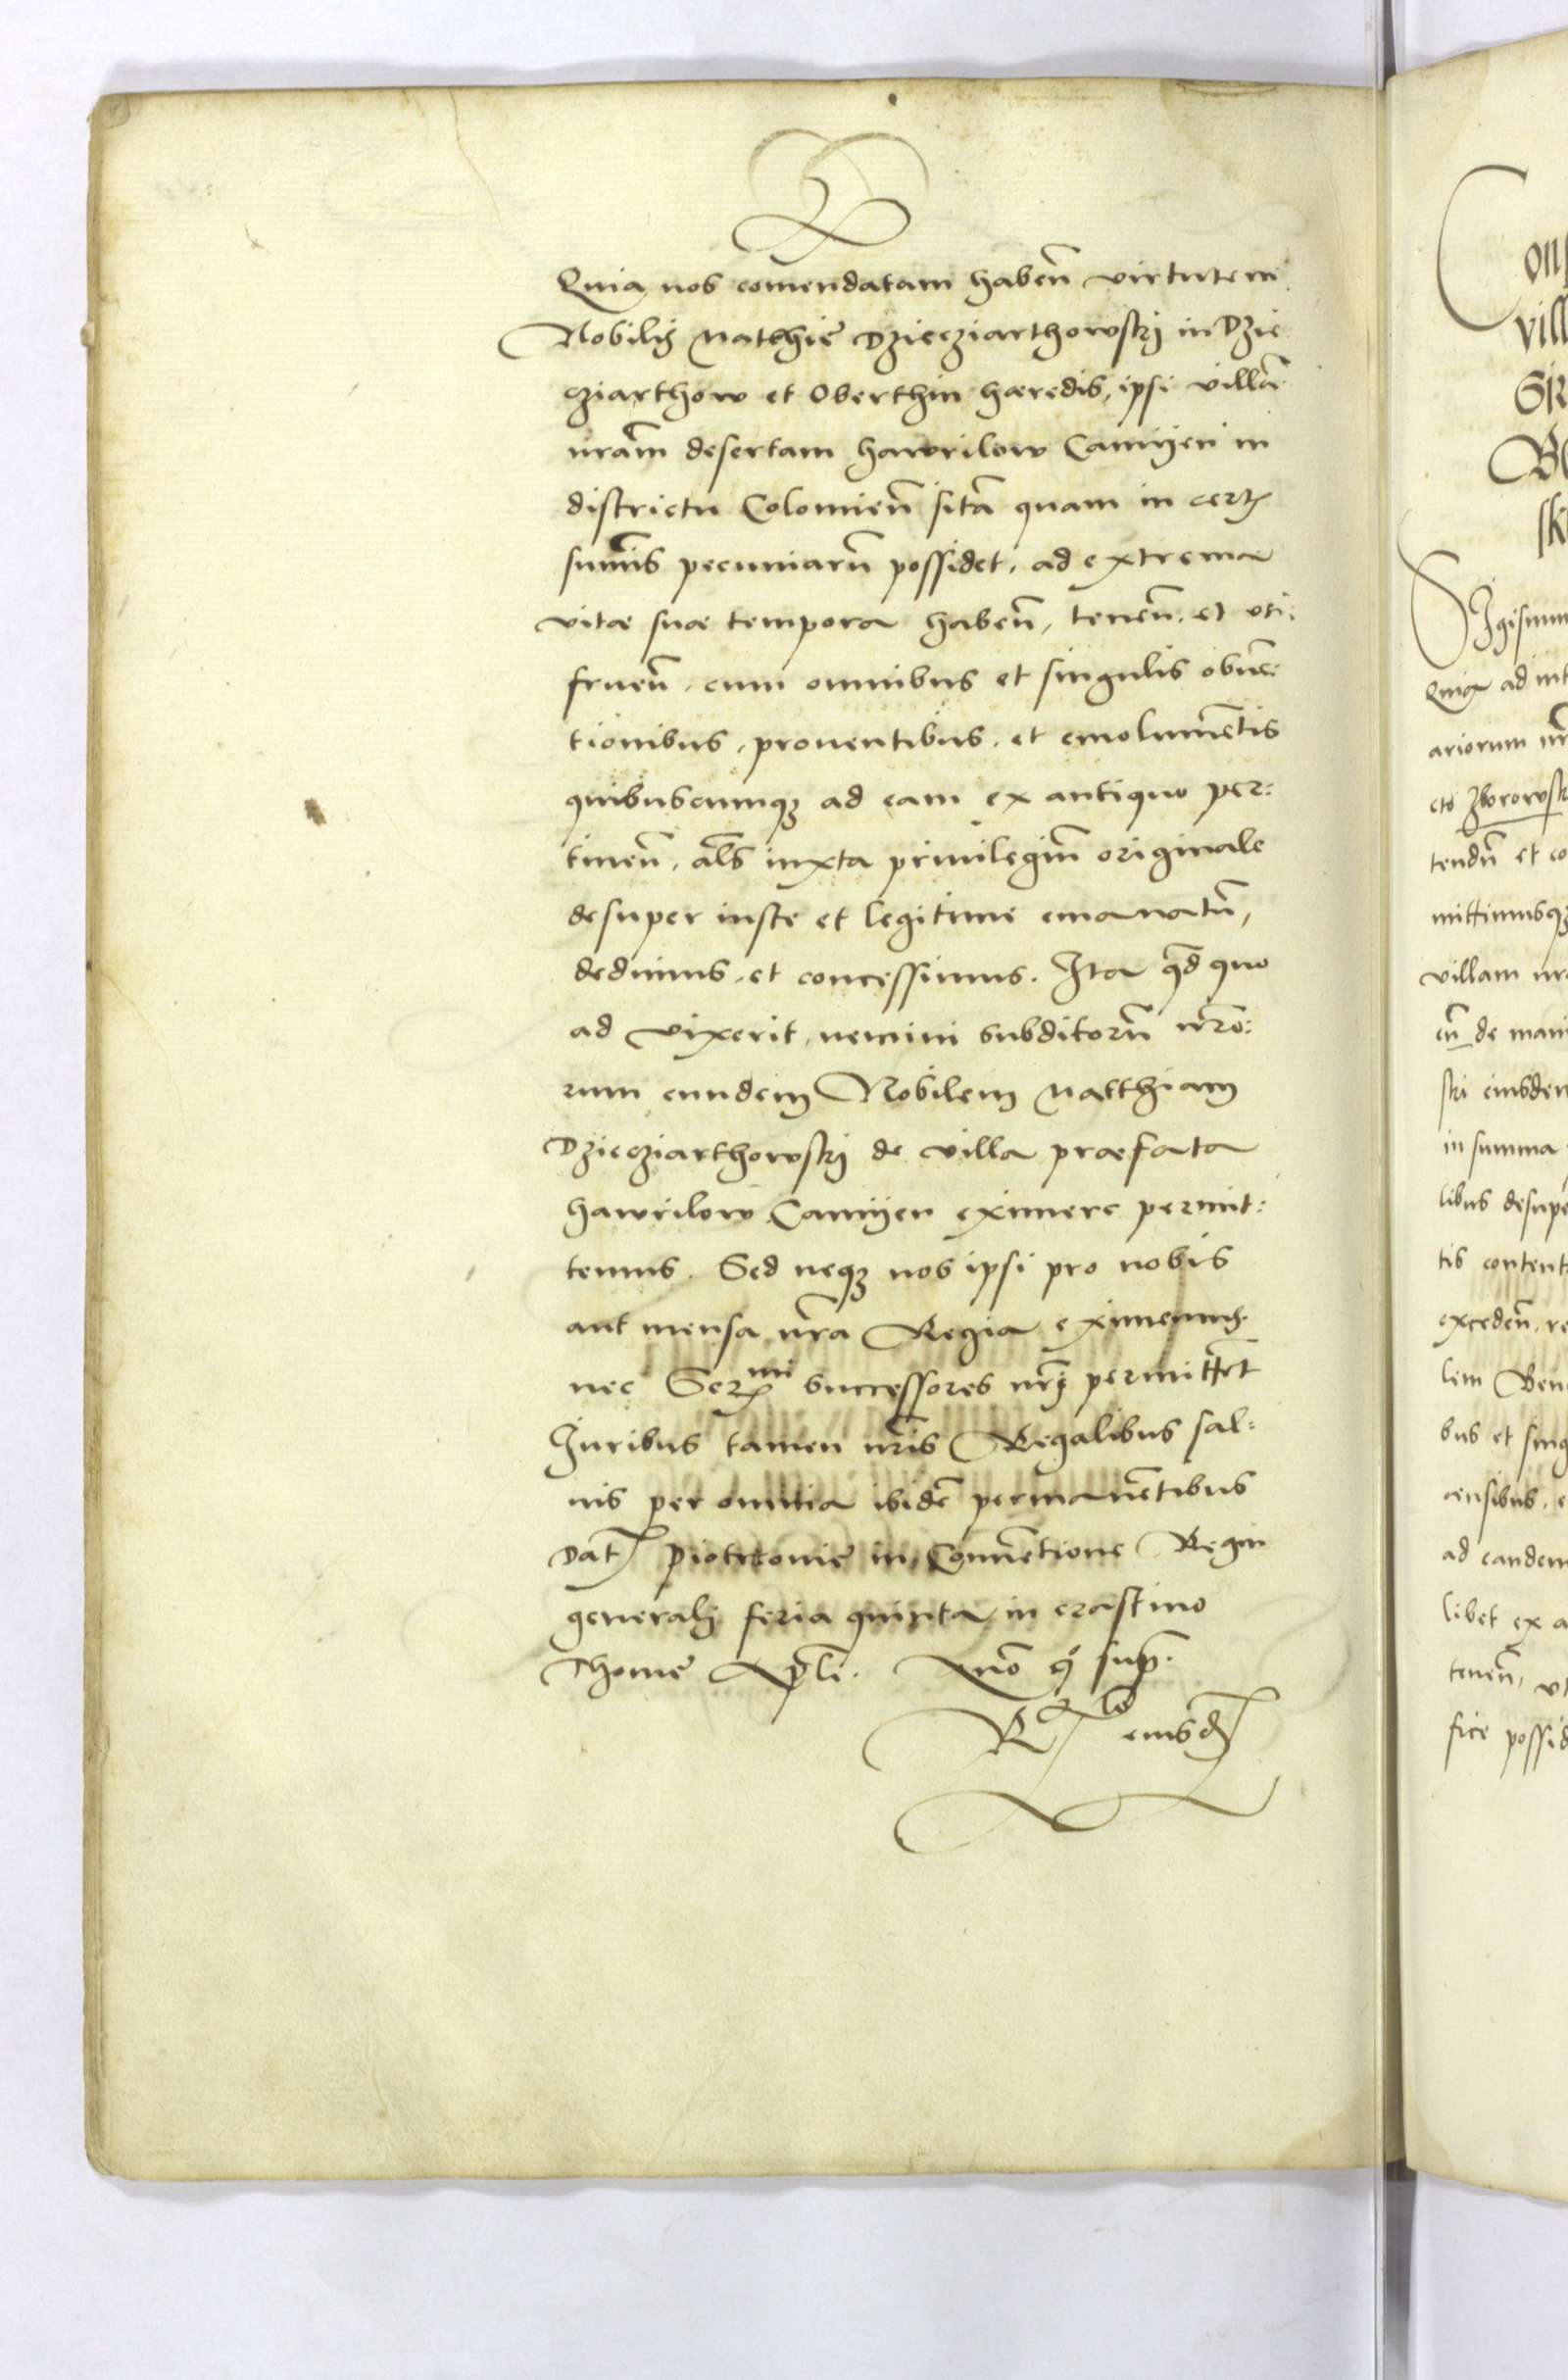 Quia nos comendatam haben̄ virtutem
Nobilis Mathie Dziecziarthowskj in Dzie
cziarthow et Oberthin hæredis, ipsi villā
nrām desertam hawrilow Camyen in
districtu Colomień sitā quam in certis
summis pecuniarū possidet, ad extrema
vitæ suæ tempora haben̄, tenen̄, et uti:
fruen̄, cum omnibus et singulis obuē:
tionibus, prouentibus, et emolumētis
quibuscumq; ad eam ex antiquo per:
tinen̄, als iuxta priuilegiū originale
desuper iuste et legitime emanatū,
dedimus, et concessimus. Ita qd quo
ad vixerit, nemini subditorū nrō:
rum eundem Nobilem Matthiam
Dzieczirthowskj de villa præfata
hawrilow Camyen eximere permit:
temus. Sed neq; nos ipsi pro nobis
aut mensa nrā Regia eximemus.
nec Sermi successores nrī permittēt
Iuribus tamen nrīs Regalibus sal:
uis per omnia ibidē permanētibus
Dat Piotrcouie in Conuētione Regni
generalj feria quinta in crastino
Thome Apli. Anō q̊ sup.
Rlo eiusd
on
vill
SIR
sk
Igisum
Quia ad int
ariorum nr
cto Zborowsk
tendū et co
mittimusq;
villam nr
cū de mani
ski eiusdem
in summa
libus desupe
tis content
exceden̄, re
lem Ben
bus et sing
censibus, e
ad eandem
libet ex a
tenen̄, ut
fice possid